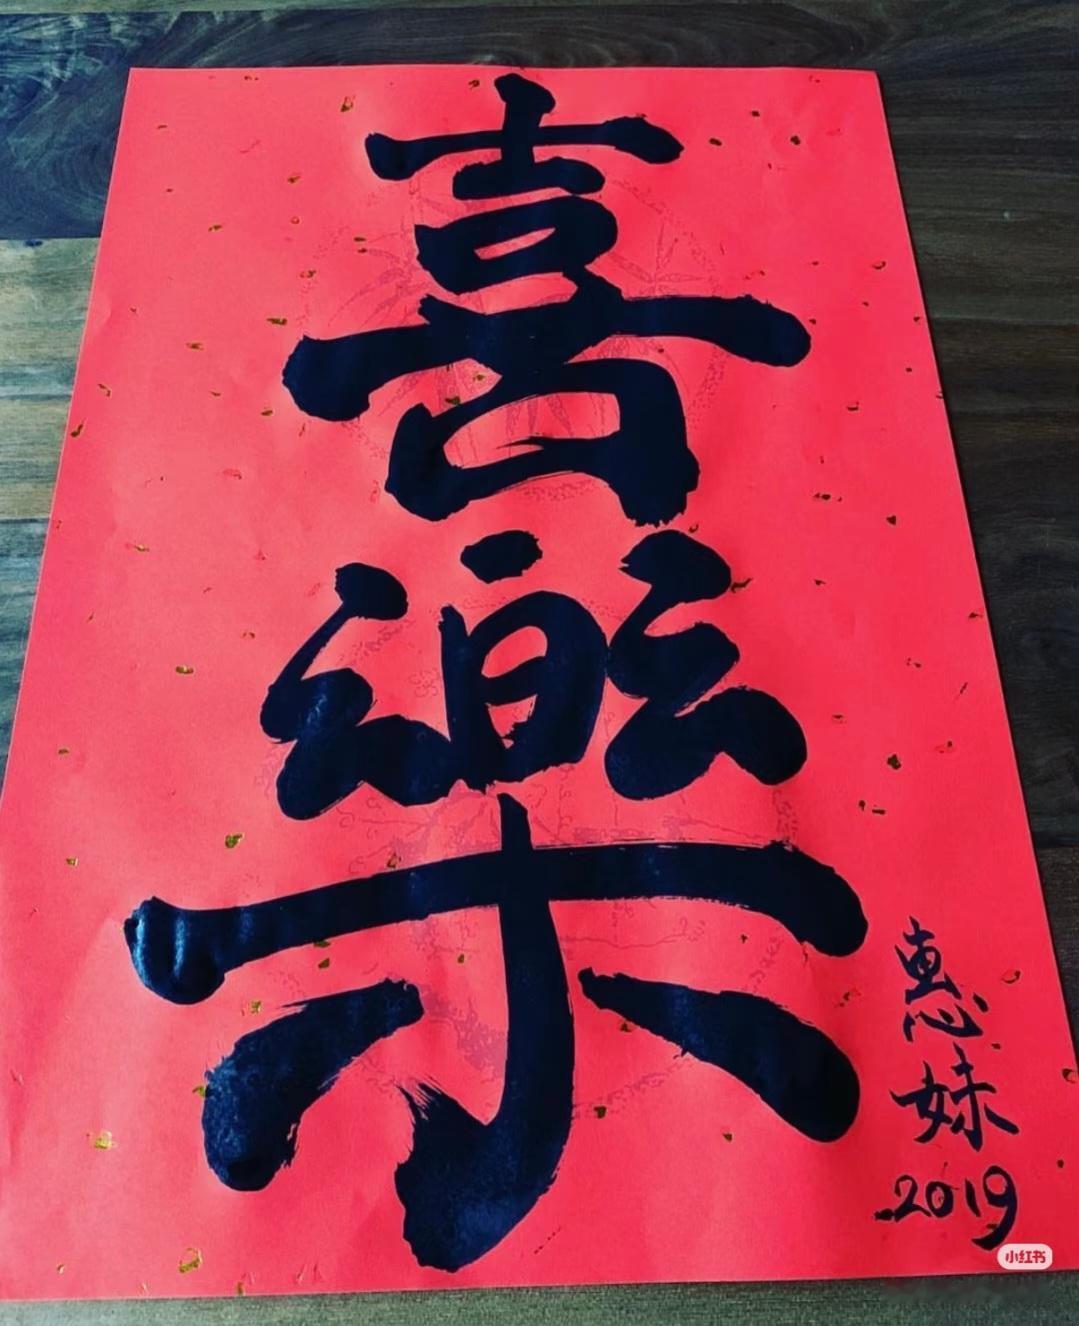 喜樂
惠妹
2019
小红书